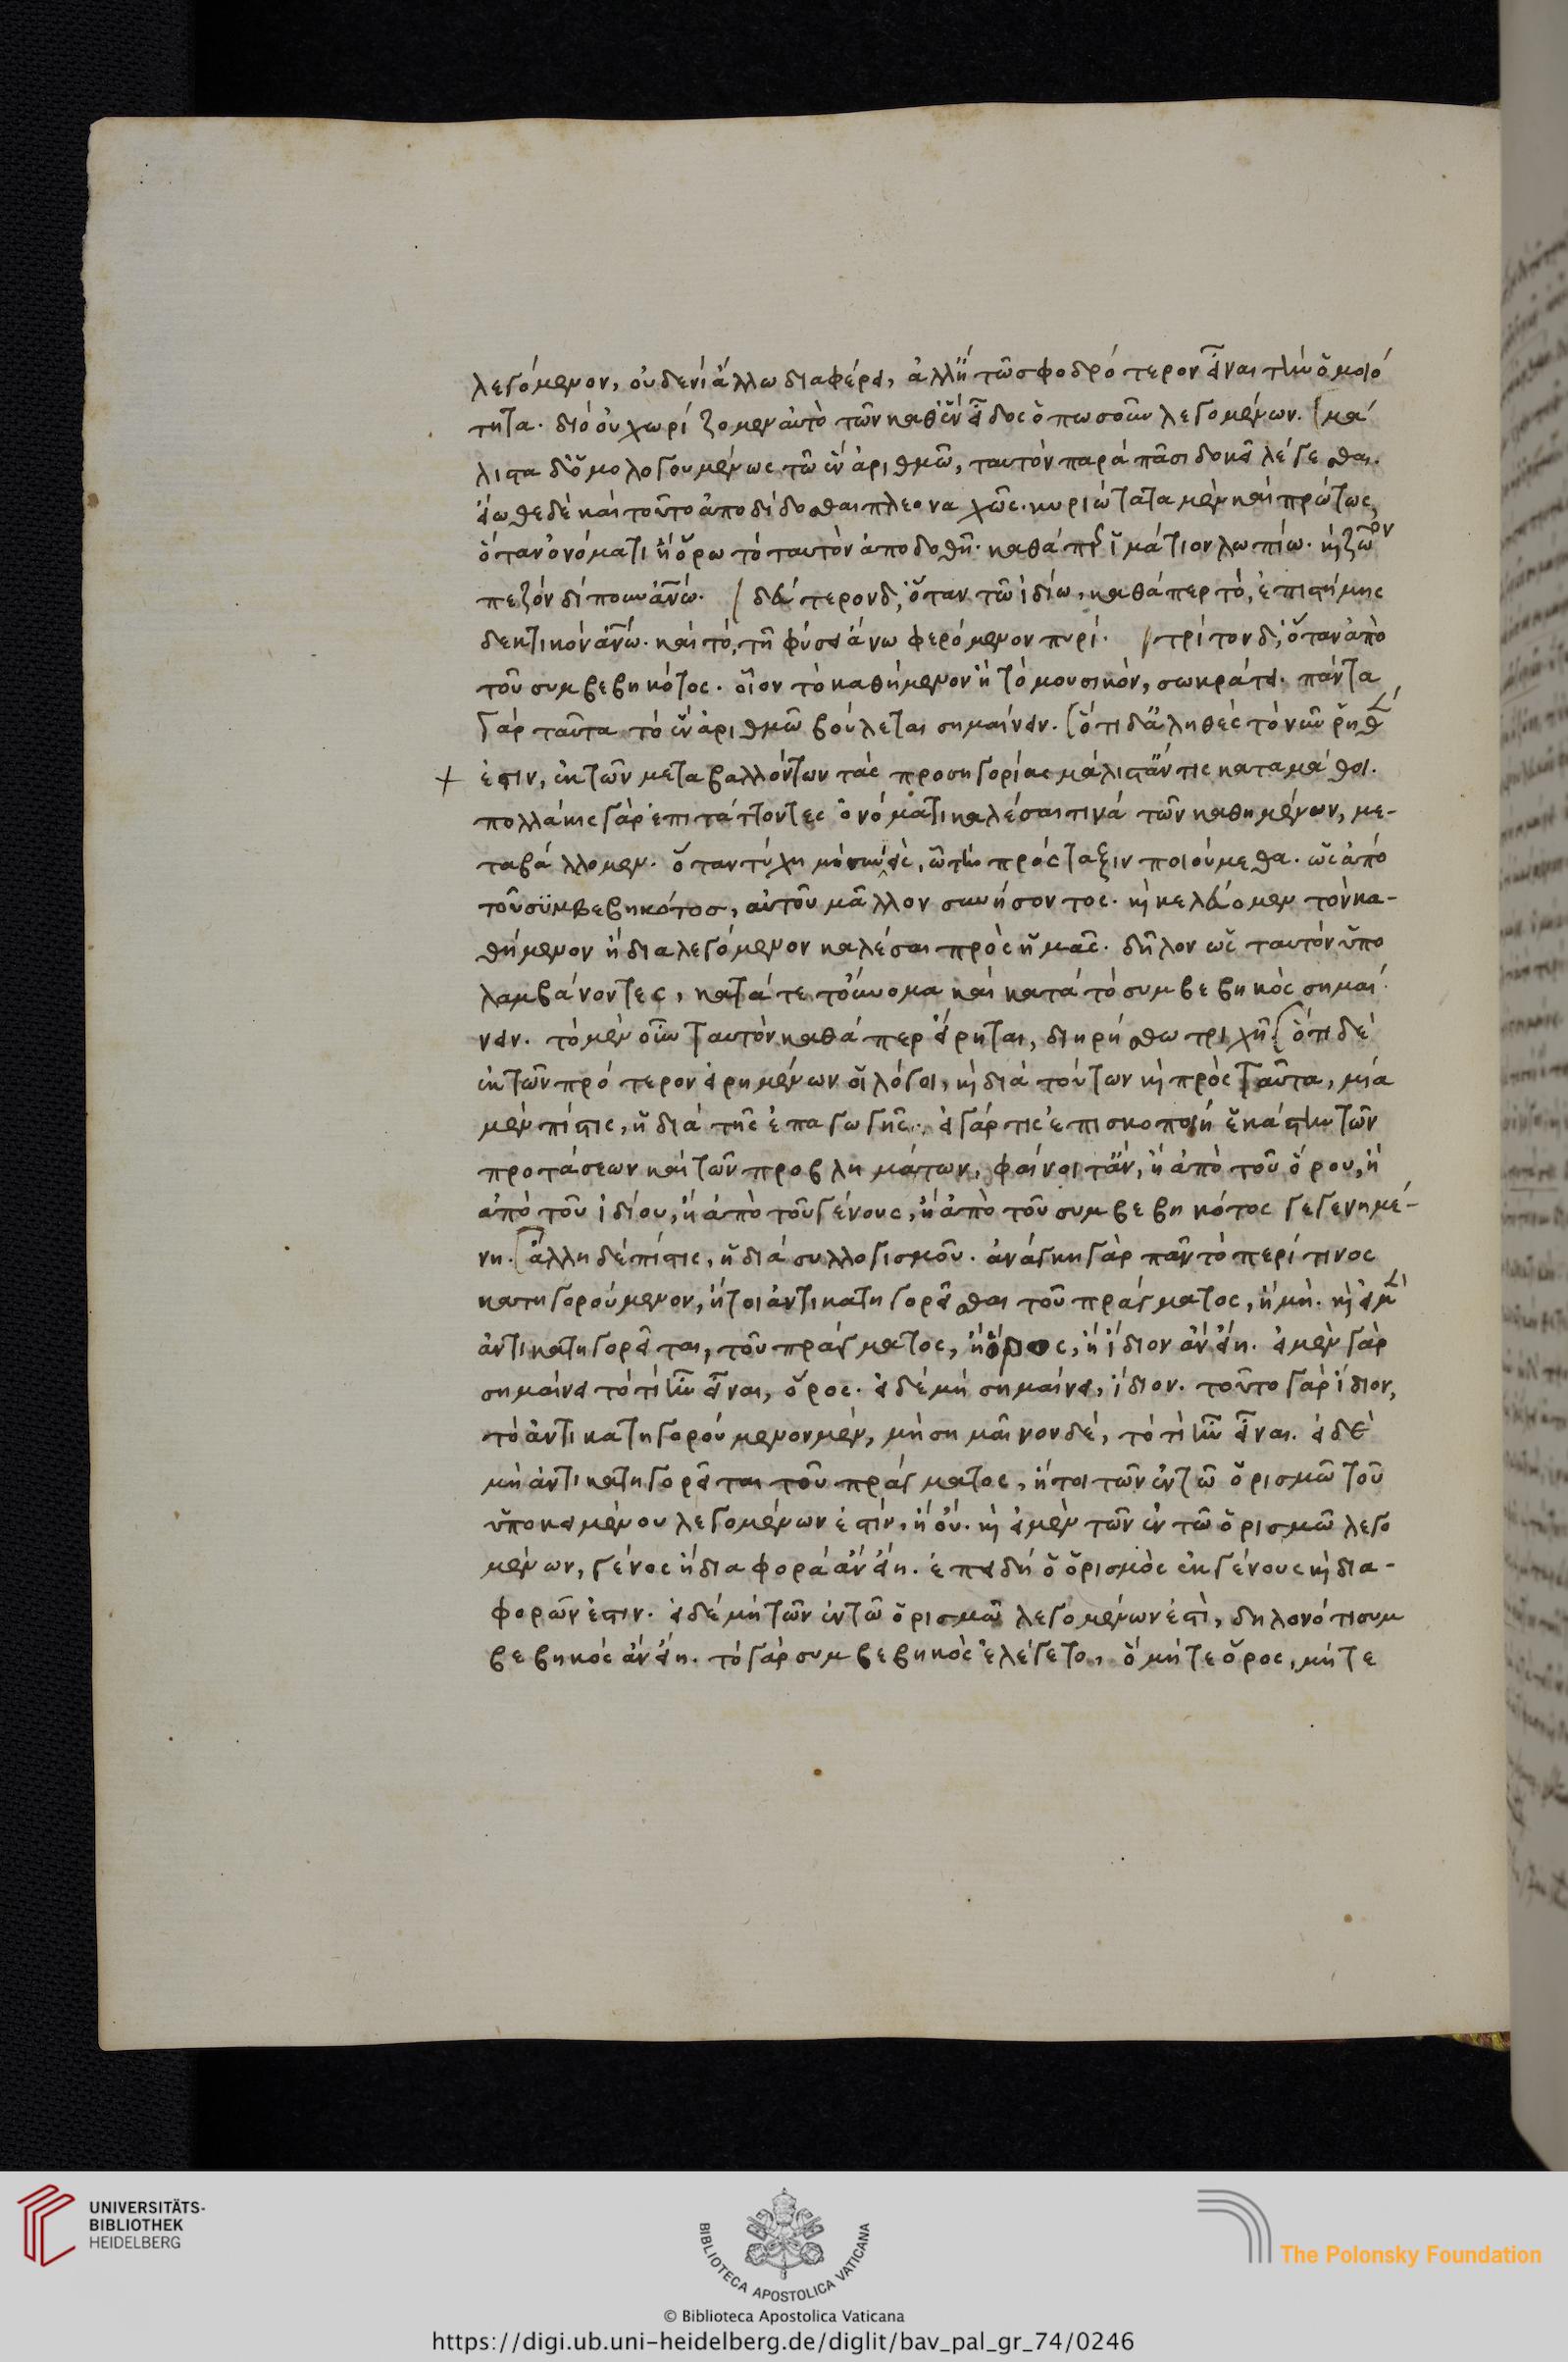 λεγόμενον, οὐδενὶ ἄλλω διαφέρει, ἀλλ' ἢ τῶ σφοδρότερον εἶναι τὴν ὁμοιό
τητα. διὸ οὐ χωρίζομεν αὐτὸ τῶν καθ' ἓν εἶδος ὁπωσοῦν λεγομένων. μά
λιστα δ' ὁμολογουμένως τῶ ἓν ἀριθμῶ, ταυτὸν παρὰ πᾶσι δοκεῖ λέγεσθαι.
εἴωθε δὲ καὶ τοῦτο ἀποδίδοσθαι πλεοναχῶς. κυριώτατα μὲν καὶ πρώτως,
ὅταν ὀνόματι ἢ ὅρω τὸ ταυτὸν ἀποδοθῆ. καθάπερ ἱμάτιον λωπίω. καὶ ζῶον
πεζὸν δίπουν ἀνω. δεύτερον δ', ὅταν τῶ ἰδίω, καθάπερ τὸ, ἐπιστήμης
δεκτικὸν ἀνω. καὶ τὸ, τῆ φύσει ἄνω φερόμενον πυρί. τρίτον δ', ὅταν ἀπὸ
τοῦ συμβεβηκότος. οἷον τὸ καθήμενον ἢ τὸ μουσικὸν, σωκράτει. πάντα
γὰρ ταῦτα τὸ ἓν ἀριθμῶ βούλεται σημαίνειν. ὅτι δ' ἀληθὲς τὸ νῦν ῥηθὲν
ἐστιν, ἐκ τῶν μεταβαλλόντων τὰς προσηγορίας μάλιστ' ἄν τις καταμάθοι.
πολλάκις γὰρ ἐπιτάττοντες ὀνόματι καλέσαι τινὰ τῶν καθημένων, με-
ταβάλλομεν. ὅταν τύχη μὴ συνιεὶς, ὧ τὴν πρόςταξιν ποιούμεθα. ὡς ἀπὸ
τοῦ συμβεβηκότοσ, αὐτοῦ μᾶλλον συνήσοντος. καὶ κελεύομεν τὸν κα-
θήμενον ἢ διαλεγόμενον καλέσαι πρὸς ἡμᾶς. δῆλον ὡς ταυτὸν ὑπο
λαμβάνοντες, κατά τε τοὔνομα καὶ κατὰ τὸ συμβεβηκὸς σημαί
νειν. τὸ μὲν οὖν ταυτὸν καθάπερ εἴρηται, διηρήσθω τριχῆ. ὅτι δὲ
ἐκ τῶν πρότερον εἰρημένων οἱ λόγοι, καὶ διὰ τούτων καὶ πρὸς ταῦτα, μία
μὲν πίστις, ἡ διὰ τῆς ἐπαγωγῆς. εἰ γάρ τις ἐπισκοποίη ἑκάστην τῶν
προτάσεων καὶ τῶν προβλημάτων, φαίνοιτ' ἄν, ἢ ἀπὸ τοῦ ὅρου, ἢ
ἀπὸ τοῦ ἰδίου, ἢ ἀπὸ τοῦ γένους, ἢ ἀπὸ τοῦ συμβεβηκότος γεγενημέ-
νη. ἄλλη δὲ πίστις, ἡ διὰ συλλογισμοῦ. ἀνάγκη γὰρ πᾶν τὸ περί τινος
κατηγορούμενον, ἤτοι ἀντικατηγορεῖσθαι τοῦ πράγματος, ἢ μή. καὶ εἰ μὲν
ἀντικατηγορεῖται, τοῦ πράγματος, ἢ ὅρος, ἢ ἴδιον ἂν εἴη. εἰ μὲν γὰρ
σημαίνει τὸ τί ἦν εἶναι, ὅρος. εἰ δὲ μὴ σημαίνει, ἴδιον. τοῦτο γὰρ ἴδιον,
τὸ ἀντικατηγορούμενον μὲν, μὴ σημαῖνον δὲ, τὸ τί ἦν εἶναι. εἰ δὲ
μὴ ἀντικατηγορεῖται τοῦ πράγματος, ἤτοι τῶν ἐν τῶ ὁρισμῶ τοῦ
ὑποκειμένου λεγομένων ἐστὶν, ἢ οὔ. καὶ εἰ μὲν τῶν ἐν τῶ ὁρισμῶ λεγο
μένων, γένος ἢ διαφορὰ ἂν εἴη. ἐπειδὴ ὁ ὁρισμὸς ἐκ γένους καὶ δια-
φορῶν ἐστιν. εἰ δὲ μὴ τῶν ἐν τῶ ὁρισμῶ λεγομένων ἐστὶ, δηλονότι συμ
βεβηκὸς ἂν εἴη. τὸ γὰρ συμβεβηκὸς ἐλέγετο, ὃ μήτε ὅρος, μήτε
UNIVERSITÄTS-
BIBLIOTHEK
HEIDELBERG
BIBLIOTECA APOSTOLICA VATICANA
The Polonsky Foundation
© Biblioteca Apostolica Vaticana
https://digi.ub.uni-heidelberg.de/diglit/bav_pal_gr_74/0246